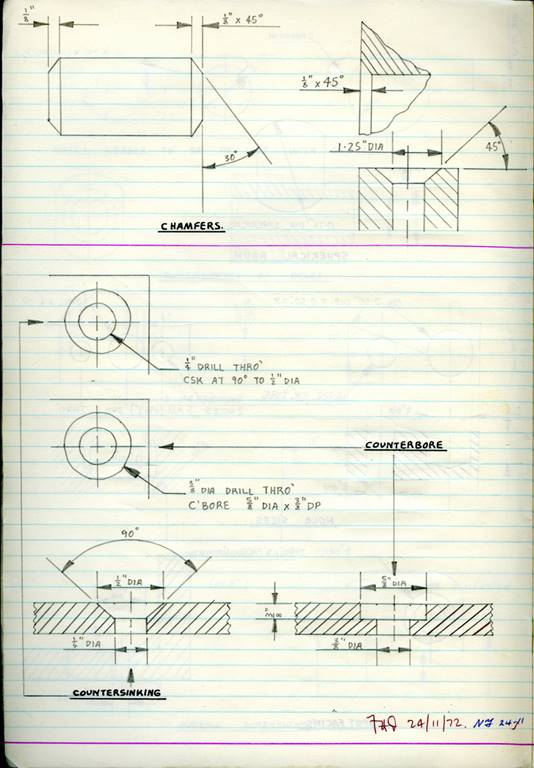 1/8"
1/8" x 45°
1/8" x 45°
30°
1·25" DIA
45°
CHAMFERS.
1/4" DRILL THRO'
CSK AT 90° TO 1/2" DIA
COUNTERBORE
3/8" DIA DRILL THRO'
C'BORE 5/8" DIA x 3/8" DP
90°
1/2" DIA
5/8" DIA
3/8"
1/4" DIA
3/8" DIA
COUNTERSINKING
24/11/72.